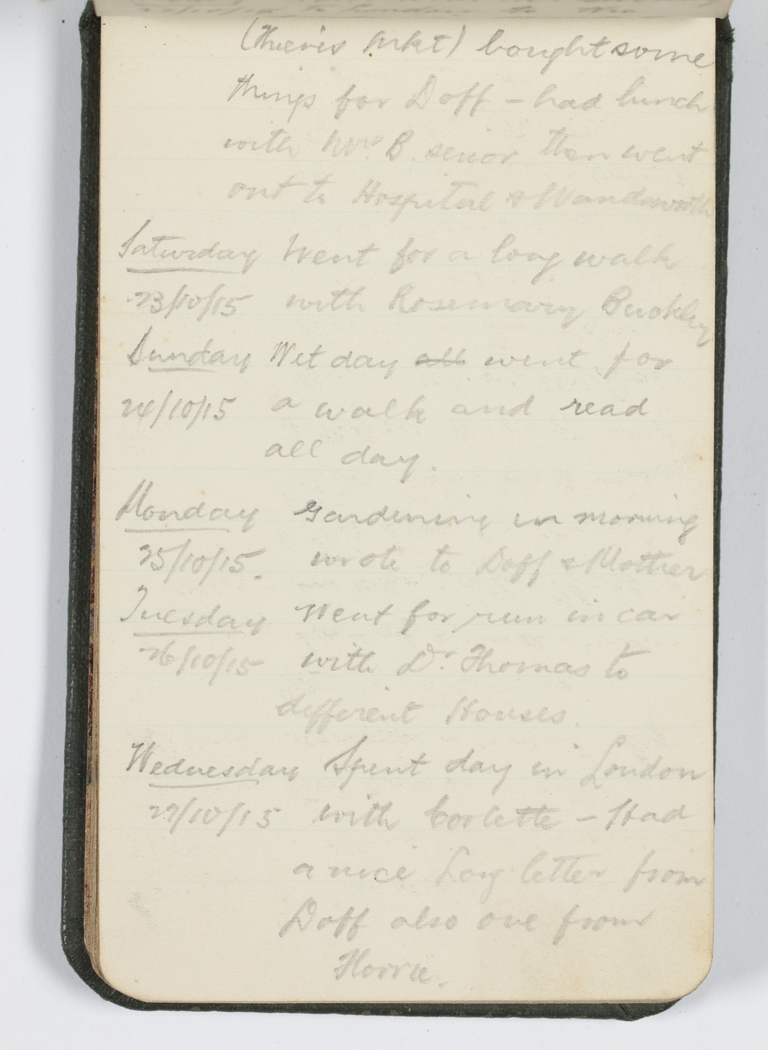 (Thieves Mrkt) bought some
things for Doff - had lunch
with Mrs B. senior then went
out to Hospital & Wandsworth
Saturday Went for a long walk
23/10/15 with Rosemary Buckley
Sunday Wet day all went for
24/10/15 a walk and read
all day.
Monday Gardening in morning
25/10/15. wrote to Doff & Mother
Tuesday Went for run in car
26/10/15 with Dr Thomas to
different Houses.
Wednesday Spent day in London
27/10/15 with Corlette - Had
a nice long letter from
Doff also one from
Horrie.